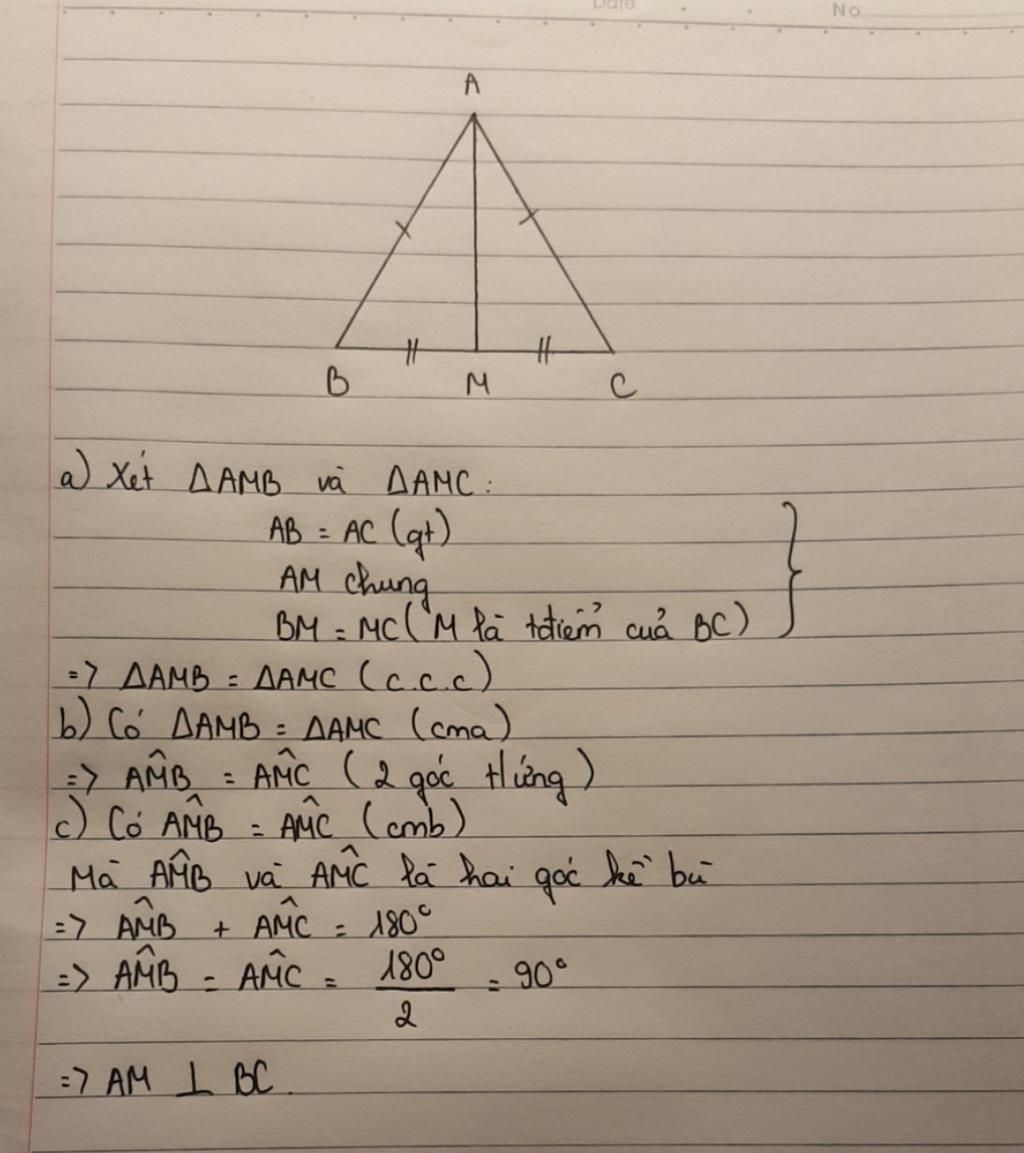 Date No
A
B M C
a) Xét ΔAMB và ΔAMC:
AB = AC (gt)
AM chung
BM = MC (M là tđiểm của BC)
=> ΔAMB = ΔAMC (c.c.c)
b) Có ΔAMB = ΔAMC (cma)
=> AM̂B = AM̂C (2 góc tứng)
c) Có AM̂B = AM̂C (cmb)
Mà AM̂B và AM̂C là hai góc kề bù
=> AM̂B + AM̂C = 180°
=> AM̂B = AM̂C = 180°/2 = 90°
=> AM ⊥ BC.